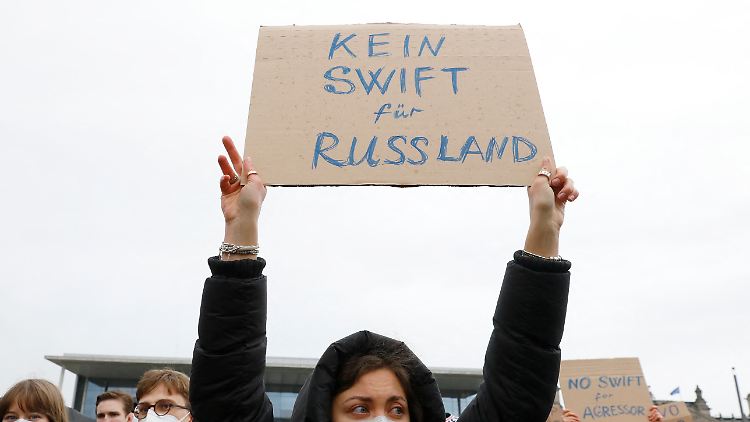 KEIN
SWIFT
für
RUSSLAND
NO SWIFT
for
AGRESSOR